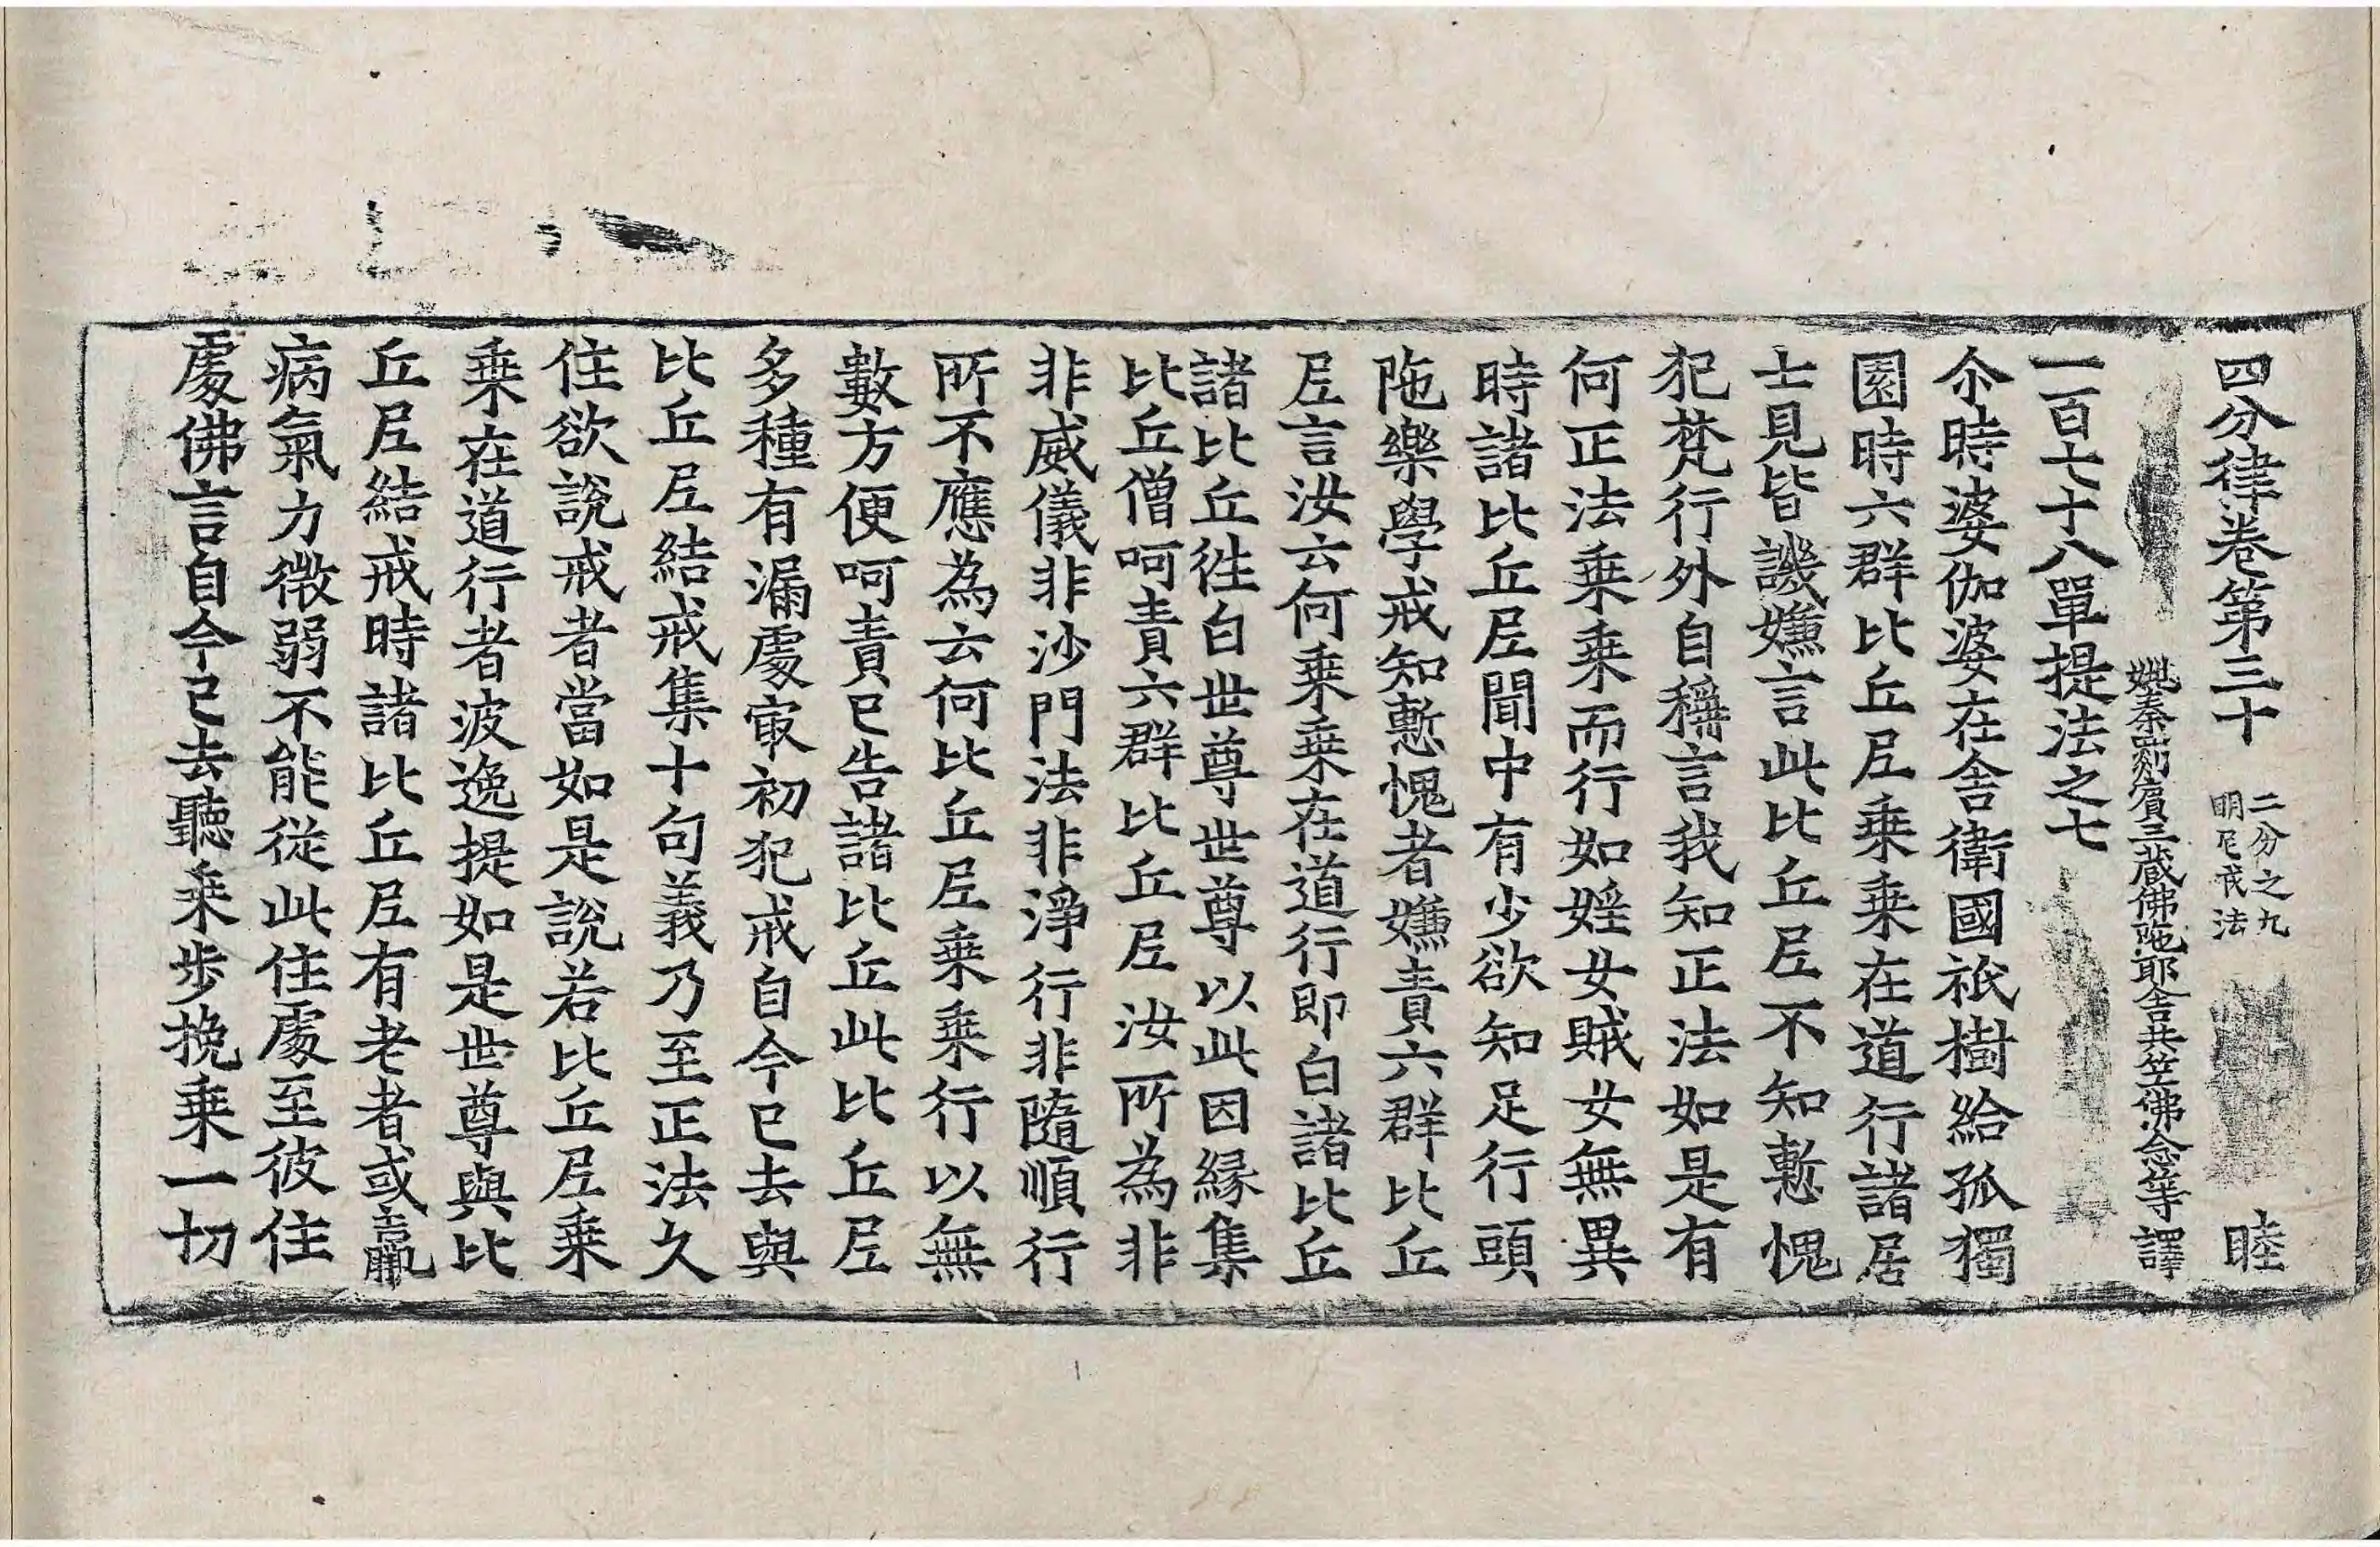 四分律卷第三十 二分之九 明尼戒法 睦
姚秦罽賓三藏佛陁耶舍共竺佛念等譯
一百七十八單提法之七
尒時婆伽婆在舍衛國祇樹給孤獨
園時六群比丘尼乗乗在道行諸居
士見皆譏嫌言此比丘尼不知慙愧
犯梵行外自稱言我知正法如是有
何正法乗乗而行如婬女賊女無異
時諸比丘尼聞中有少欲知足行頭
陁樂學戒知慙愧者嫌責六群比丘
尼言汝云何乗乗在道行即白諸比丘
諸比丘徃白世尊世尊以此因縁集
比丘僧呵責六群比丘尼汝所為非
非威儀非沙門法非淨行非隨順行
所不應為云何比丘尼乗乗行以無
數方便呵責已告諸比丘此比丘尼
多種有漏處㝡初犯戒自今已去與
比丘尼結戒集十句義乃至正法久
住欲說戒者當如是說若比丘尼乗
乗在道行者波逸提如是世尊與比
丘尼結戒時諸比丘尼有老者或羸
病氣力微弱不能從此住處至彼住
處佛言自今已去聽乗步挽乗一切